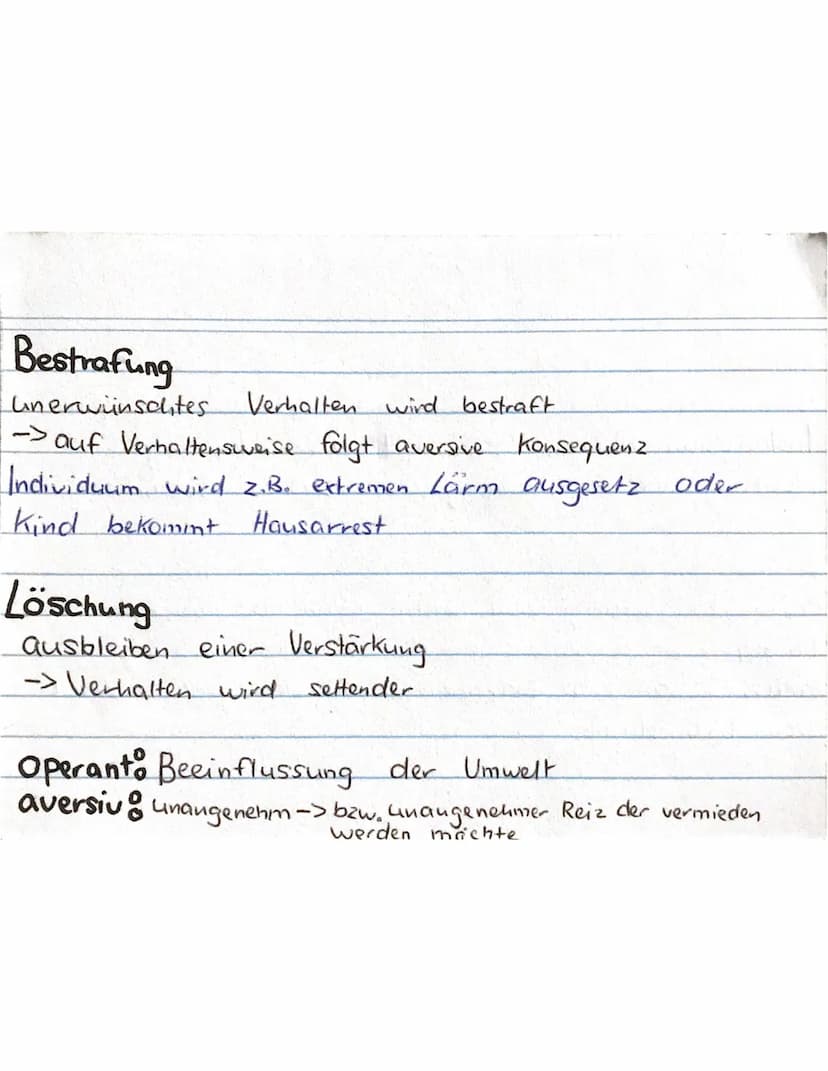 Bestrafung
unerwünschtes Verhalten wird bestraft
-> auf Verhaltensweise folgt aversive Konsequenz
Individuum wird z.B. extremen Lärm ausgesetz oder
Kind bekommt Hausarrest
Löschung
ausbleiben einer Verstärkung
-> Verhalten wird seltender
Operant: Beeinflussung der Umwelt
aversiv: unangenehm -> bzw. unangenehmer Reiz der vermieden
werden möchte